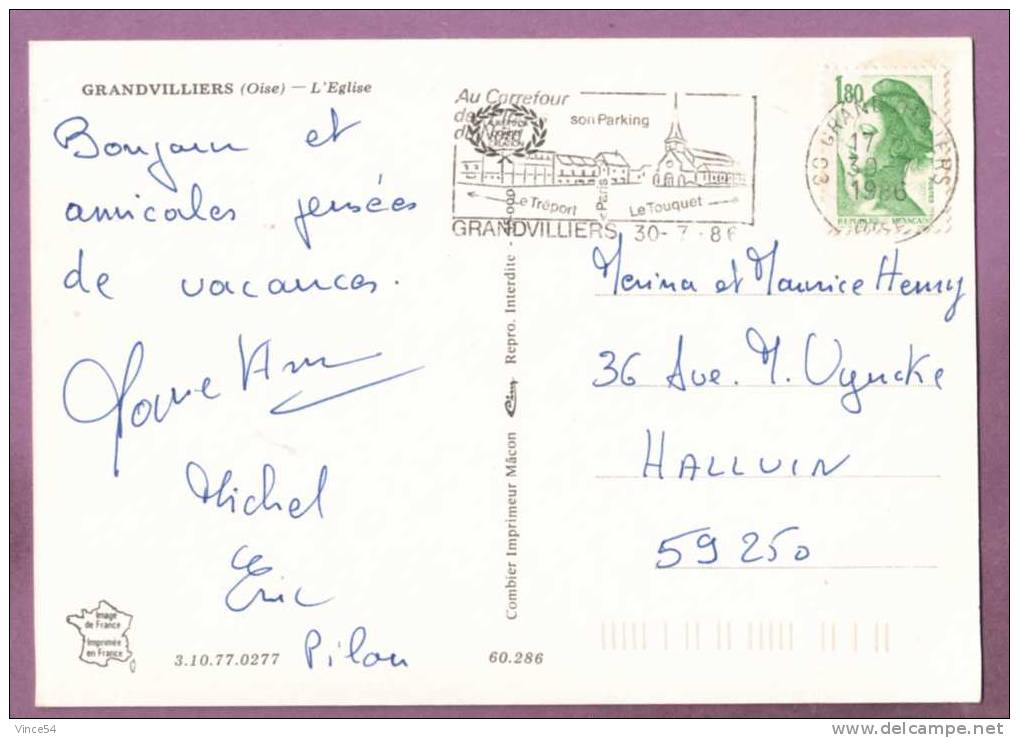 GRANDVILLIERS (Oise) — L'Eglise
Bonjour et
amicales pensées
de vacances.
Michel
Eric
Pilon
Image
de France
Imprimée
en France
3.10.77.0277
60.286
Combier Imprimeur Mâcon Cim Repro. Interdite -
Au Carrefour
son Parking
Le Tréport
Paris
Le Touquet
GRANDVILLIERS 30-7-86
1,80
17
30-
1986
OISE
Merina et Maurice Henry
36 Ave. M. Uyncke
HALLUIN
59250
Vince54
www.delcampe.net